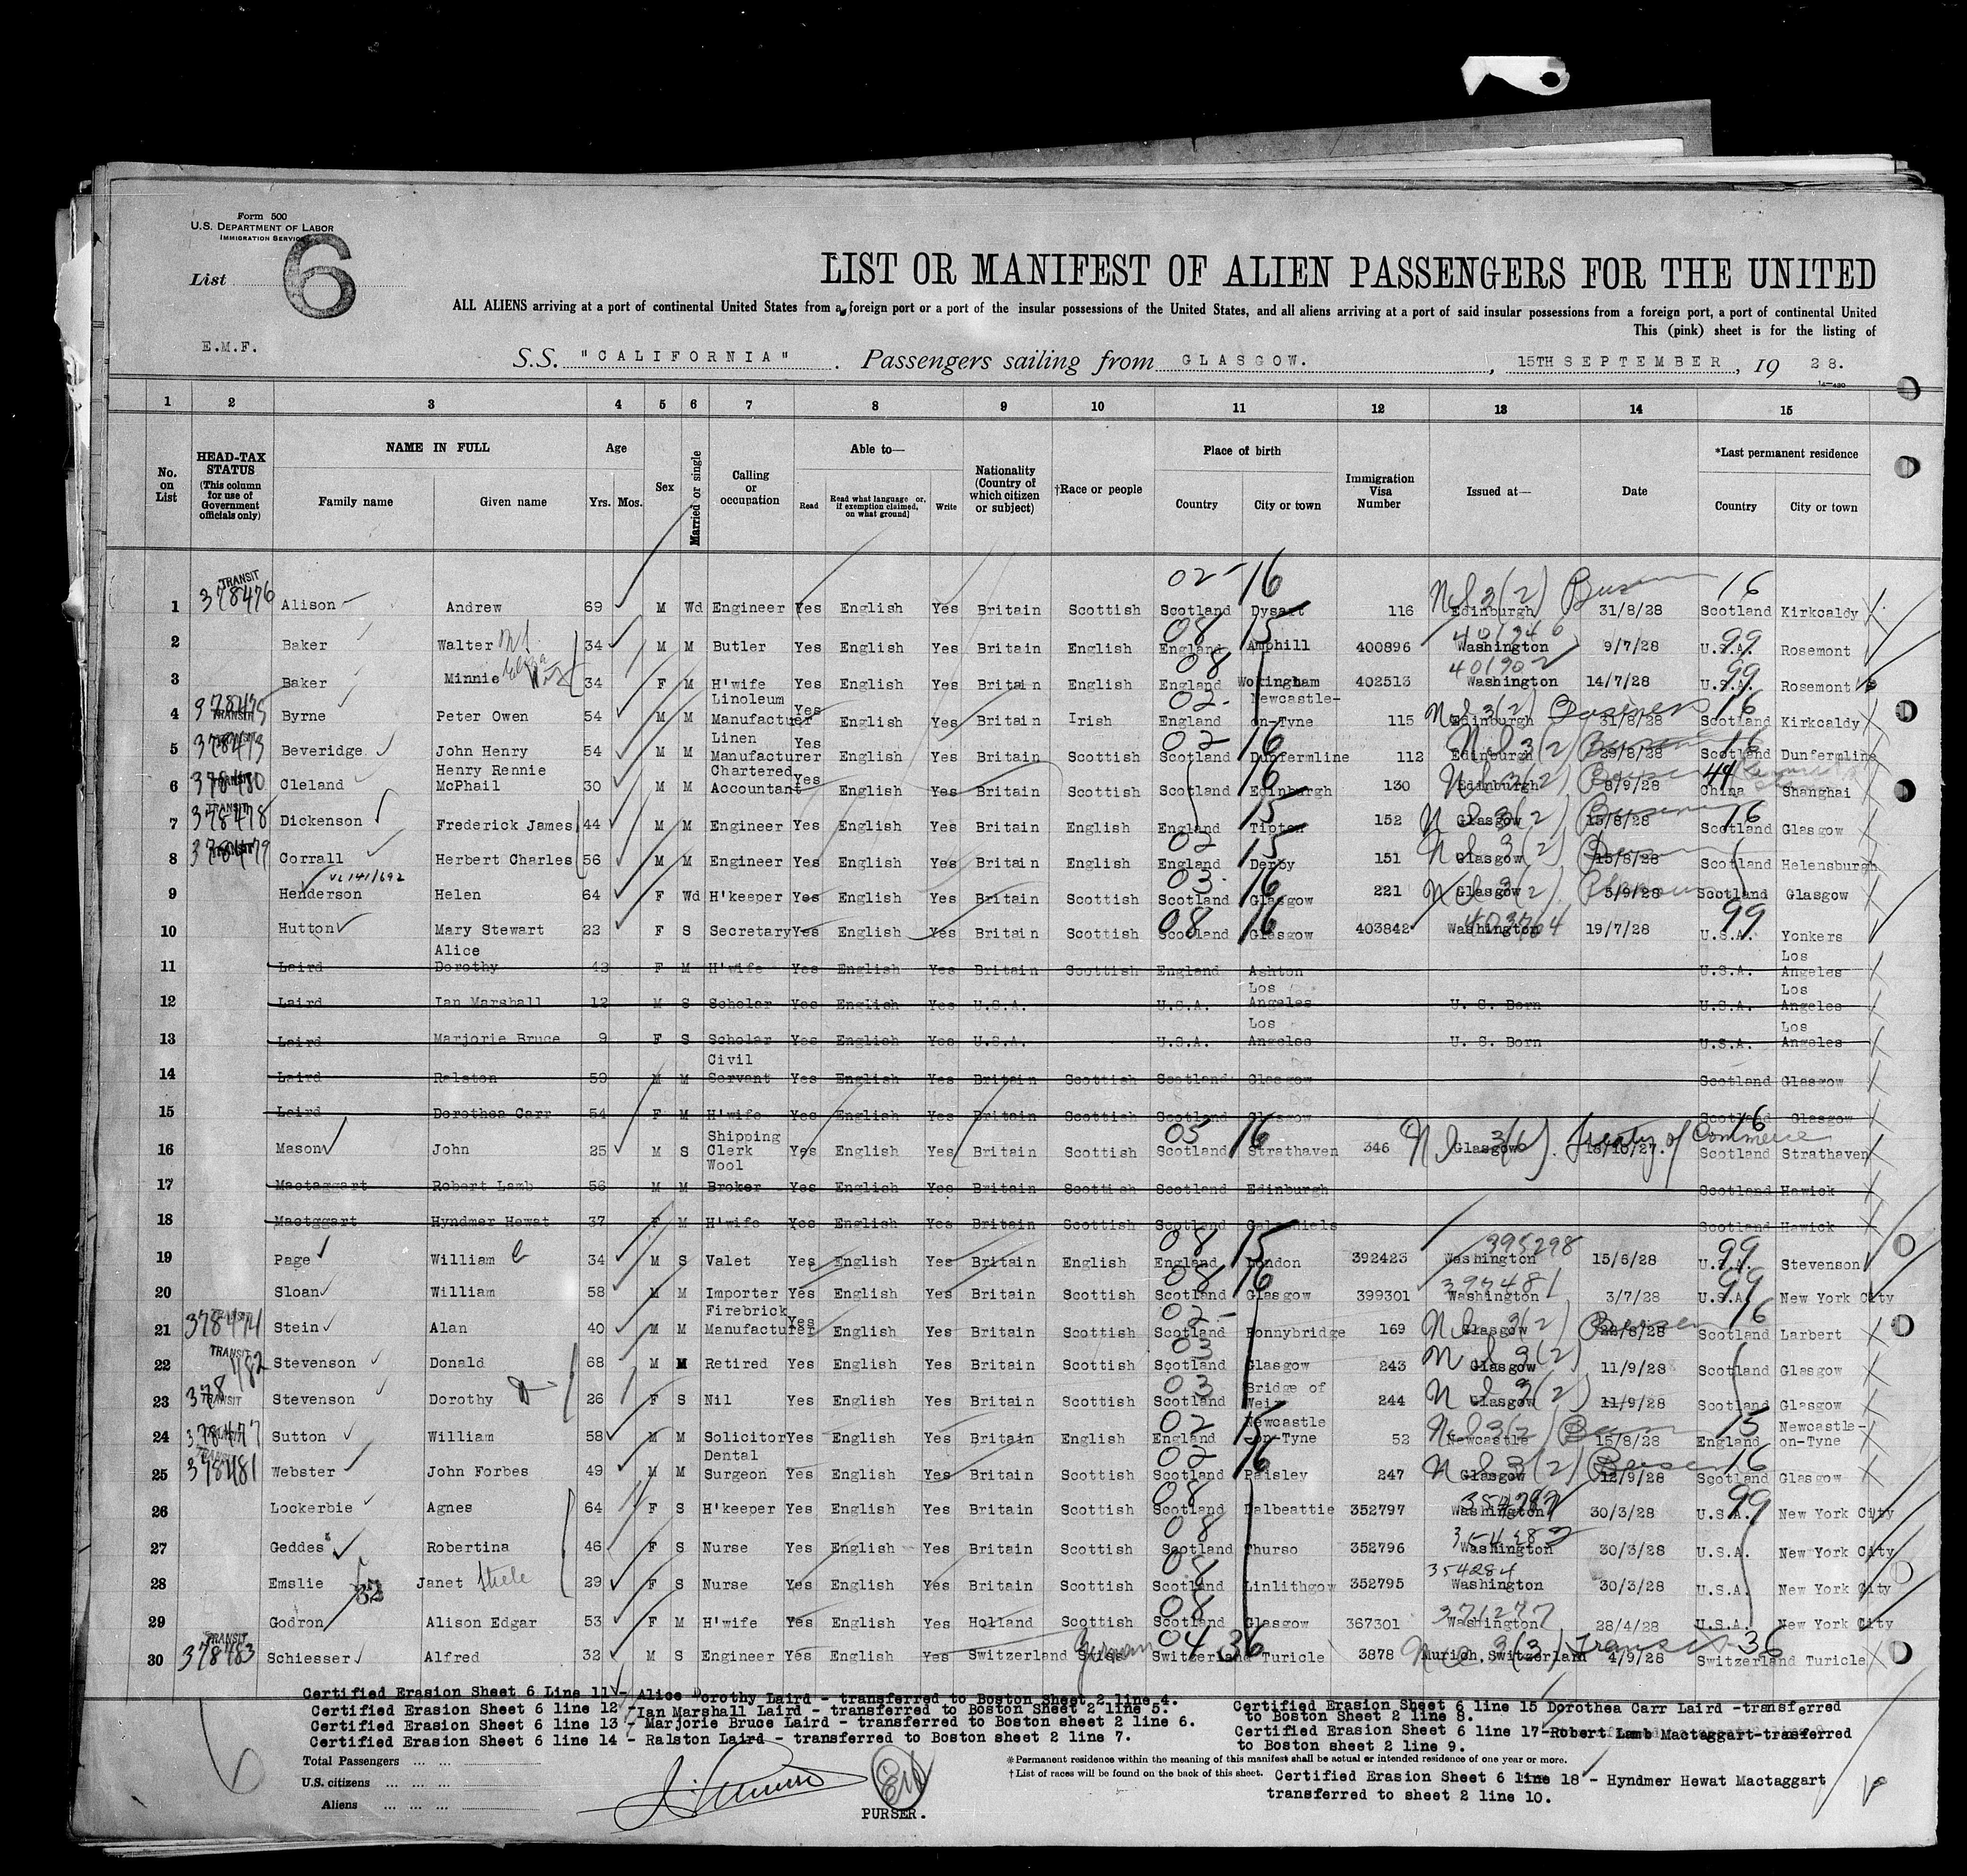 Form 500
U.S. DEPARTMENT OF LABOR
IMMIGRATION SERVICE
List 6
LIST OR MANIFEST OF ALIEN PASSENGERS FOR THE UNITED
ALL ALIENS arriving at a port of continental United States from a foreign port or a port of the insular possessions of the United States, and all aliens arriving at a port of said insular possessions from a foreign port, a port of continental United
This (pink) sheet is for the listing of
E.M.F.
S.S. "CALIFORNIA". Passengers sailing from GLASGOW., 15TH SEPTEMBER, 19 28.
1 2 3 4 5 6 7 8 9 10 11 12 13 14 15
No. on List HEAD-TAX STATUS (This column for use of Government officials only) NAME IN FULL Family name Given name Age Yrs. Mos. Sex Married or single Calling or occupation Able to— Read Read what language or, if exemption claimed, on what ground] Write Nationality (Country of which citizen or subject) †Race or people Place of birth Country City or town Immigration Visa Number Issued at— Date *Last permanent residence Country City or town
1 TRANSIT 378476 Alison Andrew 69 M Wd Engineer Yes English Yes Britain Scottish 02- 16 Scotland Dysart 116 Edinburgh 31/8/28 16 Scotland Kirkcaldy
2 Baker Walter 34 M M Butler Yes English Yes Britain English 08 15 England Amphill 400896 Washington 9/7/28 99 U.S.A. Rosemont
3 Baker Minnie 34 F M H'wife Yes English Yes Britain English 08 England Wokingham 402513 401902 Washington 14/7/28 99 U.S.A. Rosemont
4 TRANSIT Byrne Peter Owen 54 M M Linoleum Manufacturer Yes English Yes Britain Irish 02- England Newcastle-on-Tyne 115 Edinburgh 31/8/28 16 Scotland Kirkcaldy
5 378473 Beveridge John Henry 54 M M Linen Manufacturer Yes English Yes Britain Scottish 02 16 Scotland Dunfermline 112 Edinburgh 29/8/28 16 Scotland Dunfermline
6 378480 Cleland Henry Rennie McPhail 30 M M Chartered Accountant Yes English Yes Britain Scottish 16 Scotland Edinburgh 130 Edinburgh 8/9/28 44 China Shanghai
7 TRANSIT 378478 Dickenson Frederick James 44 M M Engineer Yes English Yes Britain English 15 England Tipton 152 Glasgow 15/8/28 16 Scotland Glasgow
8 378479 Corrall Herbert Charles 56 M M Engineer Yes English Yes Britain English 02 15 England Derby 151 Glasgow 15/8/28 Scotland Helensburgh
9 Henderson Helen 64 F Wd H'keeper Yes English Yes Britain Scottish 03- 16 Scotland Glasgow 221 Glasgow 5/9/28 Scotland Glasgow
10 Hutton Mary Stewart 22 F S Secretary Yes English Yes Britain Scottish 08 16 Scotland Glasgow 403842 Washington 19/7/28 99 U.S.A. Yonkers
11 Laird Alice Dorothy 43 F M H'wife Yes English Yes Britain Scottish England Ashton U.S.A. Los Angeles
12 Laird Ian Marshall 12 M S Scholar Yes English Yes U.S.A. U.S.A. Los Angeles U. S. Born U.S.A. Los Angeles
13 Laird Marjorie Bruce 9 F S Scholar Yes English Yes U.S.A. U.S.A. Los Angeles U. S. Born U.S.A. Los Angeles
14 Laird Ralston 59 M M Civil Servant Yes English Yes Britain Scottish Scotland Glasgow Scotland Glasgow
15 Laird Dorothea Carr 54 F M H'wife Yes English Yes Britain Scottish Scotland Glasgow Scotland Glasgow
16 Mason John 25 M S Shipping Clerk Yes English Yes Britain Scottish 05 16 Scotland Strathaven 346 Glasgow Treaty of Commerce 16 Scotland Strathaven
17 Mactaggart Robert Lamb 56 M M Wool Broker Yes English Yes Britain Scottish Scotland Edinburgh Scotland Hawick
18 Mactggart Hyndmer Hewat 37 F M H'wife Yes English Yes Britain Scottish Scotland Galashiels Scotland Hawick
19 Page William 34 M S Valet Yes English Yes Britain English 08 15 England London 392423 395298 Washington 15/6/28 99 U.S.A. Stevenson
20 Sloan William 58 M M Importer Yes English Yes Britain Scottish 08 16 Scotland Glasgow 399301 397481 Washington 3/7/28 99 U.S.A. New York City
21 378474 Stein Alan 40 M M Firebrick Manufacturer Yes English Yes Britain Scottish 02- Scotland Bonnybridge 169 Glasgow 16 Scotland Larbert
22 TRANSIT 482 Stevenson Donald 68 M M Retired Yes English Yes Britain Scottish 03 Scotland Glasgow 243 Glasgow 11/9/28 Scotland Glasgow
23 378 TRANSIT Stevenson Dorothy 26 F S Nil Yes English Yes Britain Scottish 03 Scotland Bridge of Weir 244 Glasgow 11/9/28 Scotland Glasgow
24 378477 Sutton William 58 M M Solicitor Yes English Yes Britain English 02 15 England Newcastle on-Tyne 52 Newcastle 15/8/28 15 England Newcastle-on-Tyne
25 378481 Webster John Forbes 49 M M Dental Surgeon Yes English Yes Britain Scottish 02 16 Scotland Paisley 247 Glasgow 12/9/28 16 Scotland Glasgow
26 Lockerbie Agnes 64 F S H'keeper Yes English Yes Britain Scottish 08 Scotland Dalbeattie 352797 Washington 30/3/28 99 U.S.A. New York City
27 Geddes Robertina 46 F S Nurse Yes English Yes Britain Scottish 08 Scotland Thurso 352796 Washington 30/3/28 U.S.A. New York City
28 Emslie Janet Steele 29 F S Nurse Yes English Yes Britain Scottish 08 Scotland Linlithgow 352795 354284 Washington 30/3/28 U.S.A. New York City
29 Godron Alison Edgar 53 F M H'wife Yes English Yes Holland Scottish 08 Scotland Glasgow 367301 371277 Washington 28/4/28 U.S.A. New York City
30 TRANSIT 378483 Schiesser Alfred 32 M S Engineer Yes English Yes Switzerland Swiss German 04 36 Switzerland Turicle 3878 Switzerland Transit 4/9/28 36 Switzerland Turicle
Certified Erasion Sheet 6 Line 11 - Alice Dorothy Laird - transferred to Boston Sheet 2 line 4.
Certified Erasion Sheet 6 line 12 - Ian Marshall Laird - transferred to Boston Sheet 2 line 5.
Certified Erasion Sheet 6 line 13 - Marjorie Bruce Laird - transferred to Boston sheet 2 line 6.
Certified Erasion Sheet 6 line 14 - Ralston Laird - transferred to Boston sheet 2 line 7.
Certified Erasion Sheet 6 line 15 Dorothea Carr Laird -transferred
to Boston Sheet 2 line 8.
Certified Erasion Sheet 6 line 17-Robert Lamb Mactaggart-transferred
to Boston sheet 2 line 9.
Total Passengers
U.S. citizens
Aliens
PURSER.
*Permanent residence within the meaning of this manifest shall be actual or intended residence of one year or more.
†List of races will be found on the back of this sheet.
Certified Erasion Sheet 6 line 18 - Hyndmer Hewat Mactaggart
transferred to sheet 2 line 10.